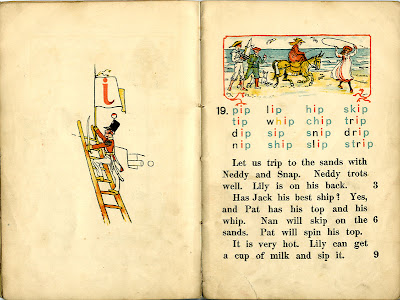 i
19. pip lip hip skip
tip whip chip trip
dip sip snip drip
nip ship slip strip
Let us trip to the sands with
Neddy and Snap. Neddy trots
well. Lily is on his back. 3
Has Jack his best ship? Yes,
and Pat has his top and his
whip. Nan will skip on the 6
sands. Pat will spin his top.
It is very hot. Lily can get
a cup of milk and sip it. 9